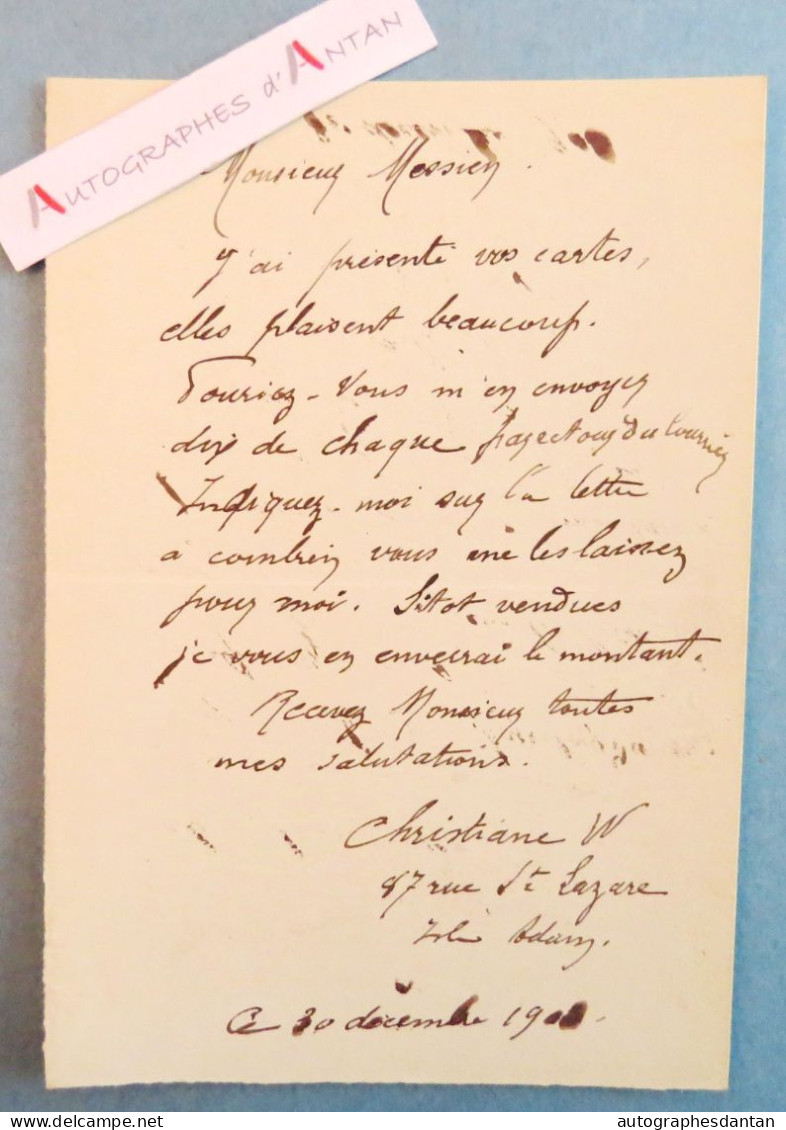 AUTOGRAPHES d'ANTAN
Monsieur Messien
J'ai présenté vos cartes,
elles plaisent beaucoup.
Pouriez-vous m'en envoyer
dix de chaque par du courrier
Indiquez-moi sur la lettre
a combien vous me les laissez
pour moi. Sitot vendues
je vous en enverrai le montant.
Recevez Monsieur toutes
mes salutations.
Christiane W
87 rue St Lazare
Isle Adam.
Ce 30 décembre 190
autographesdantan